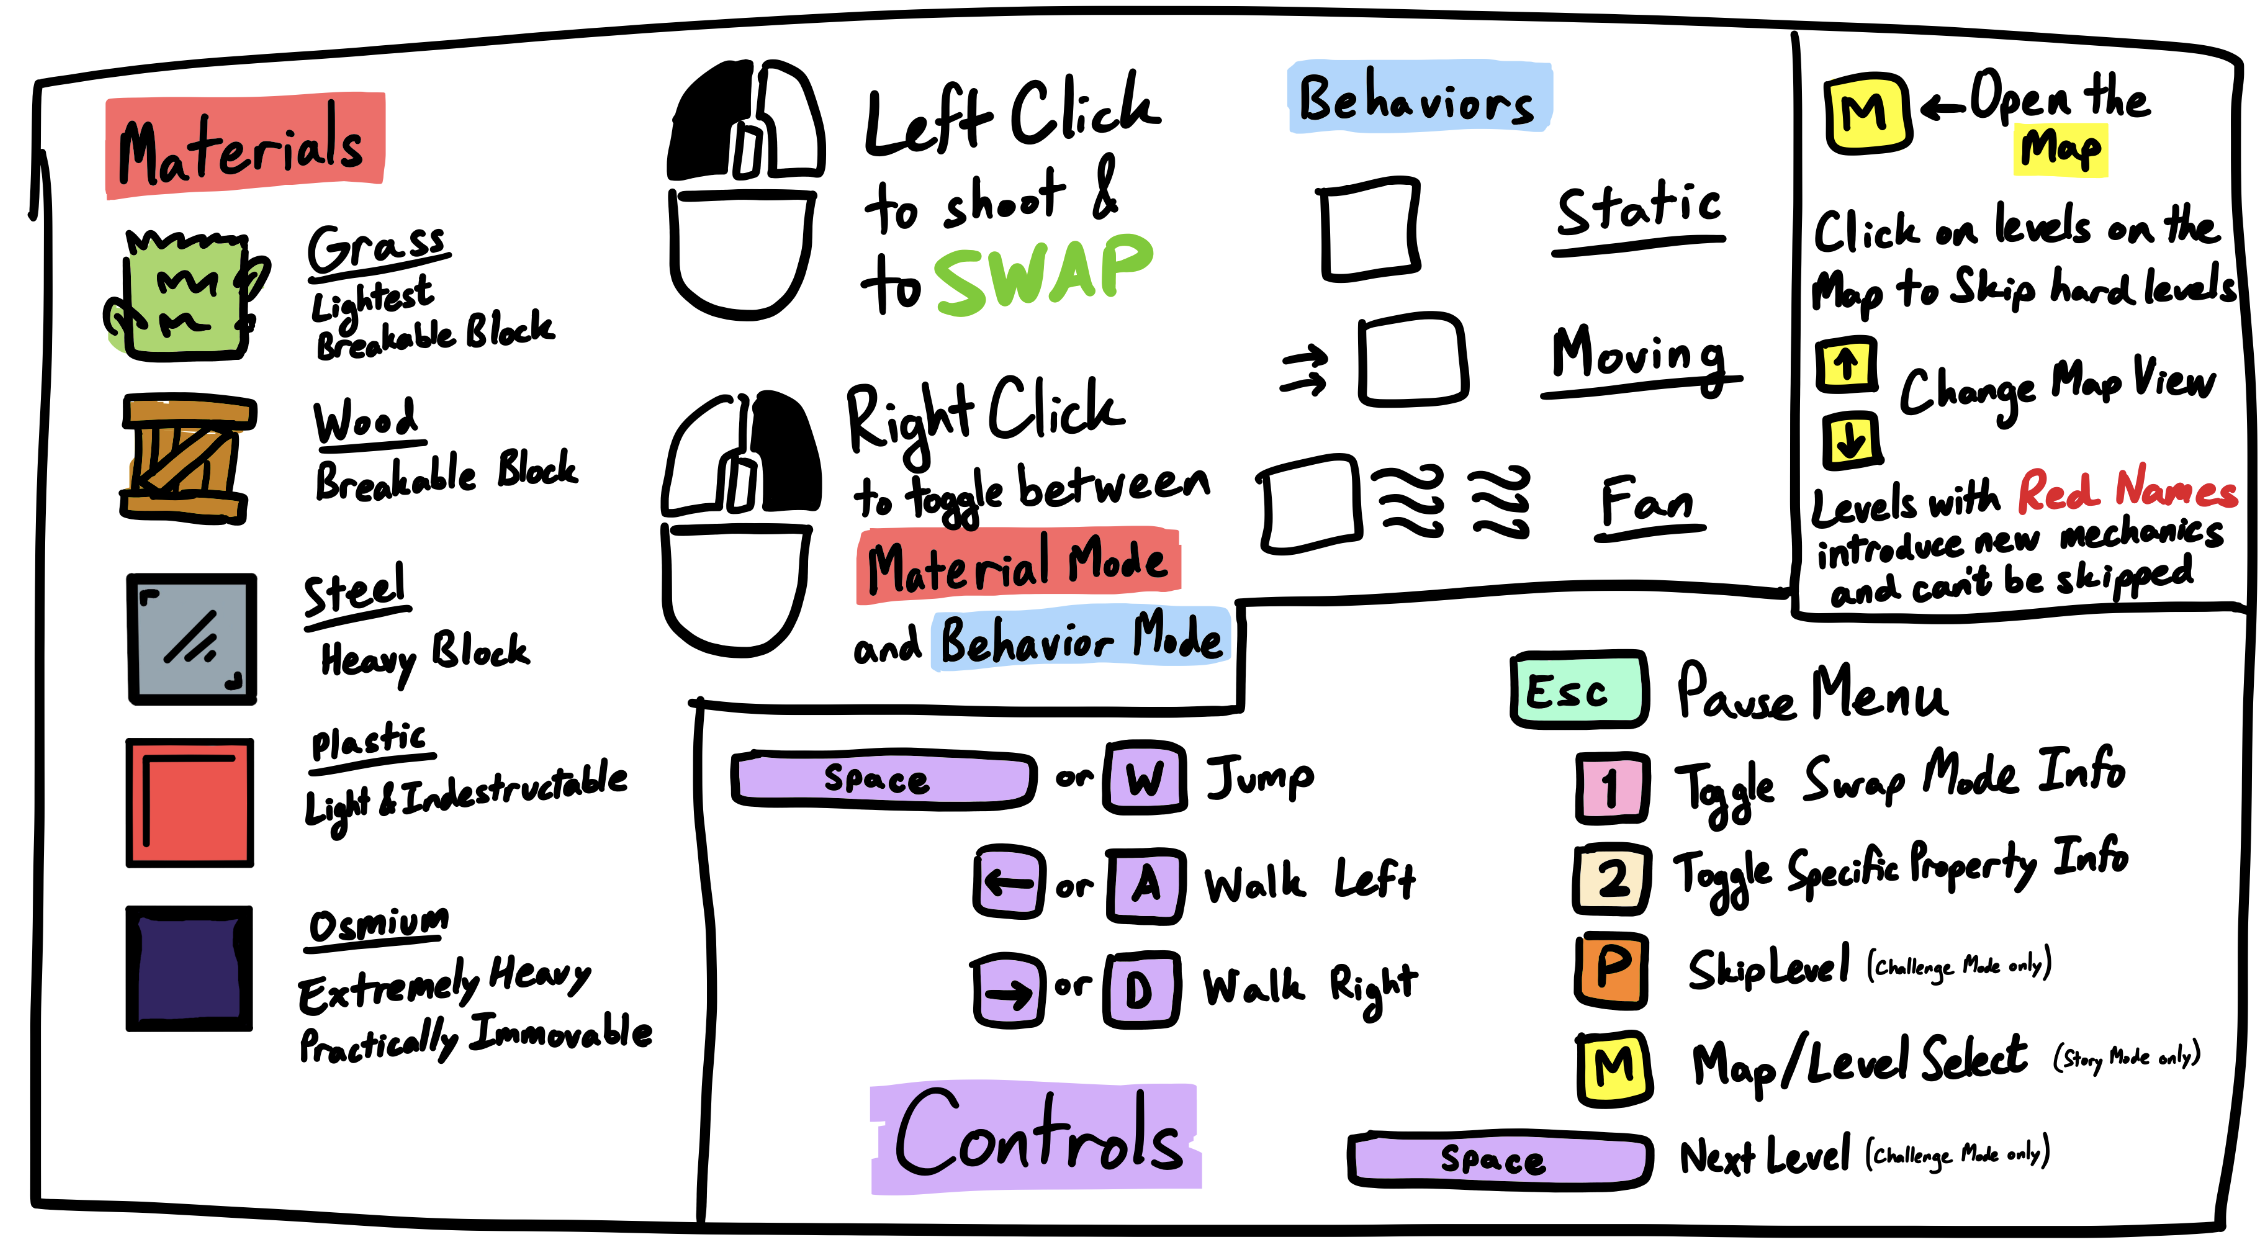 Materials
Grass
Lightest
Breakable Block
Wood
Breakable Block
Steel
Heavy Block
Plastic
Light & Indestructable
Osmium
Extremely Heavy
Practically Immovable
Left Click
to shoot &
to SWAP
Right Click
to toggle between
Material Mode
and Behavior Mode
Behaviors
Static
Moving
Fan
M ← Open the
Map
Click on levels on the
Map to Skip hard levels
↑
Change Map View
↓
Levels with Red Names
introduce new mechanics
and can't be skipped
Space or W Jump
← or A Walk Left
→ or D Walk Right
Controls
Esc Pause Menu
1 Toggle Swap Mode Info
2 Toggle Specific Property Info
P Skip Level (Challenge Mode only)
M Map/Level Select (Story Mode only)
Space Next Level (Challenge Mode only)